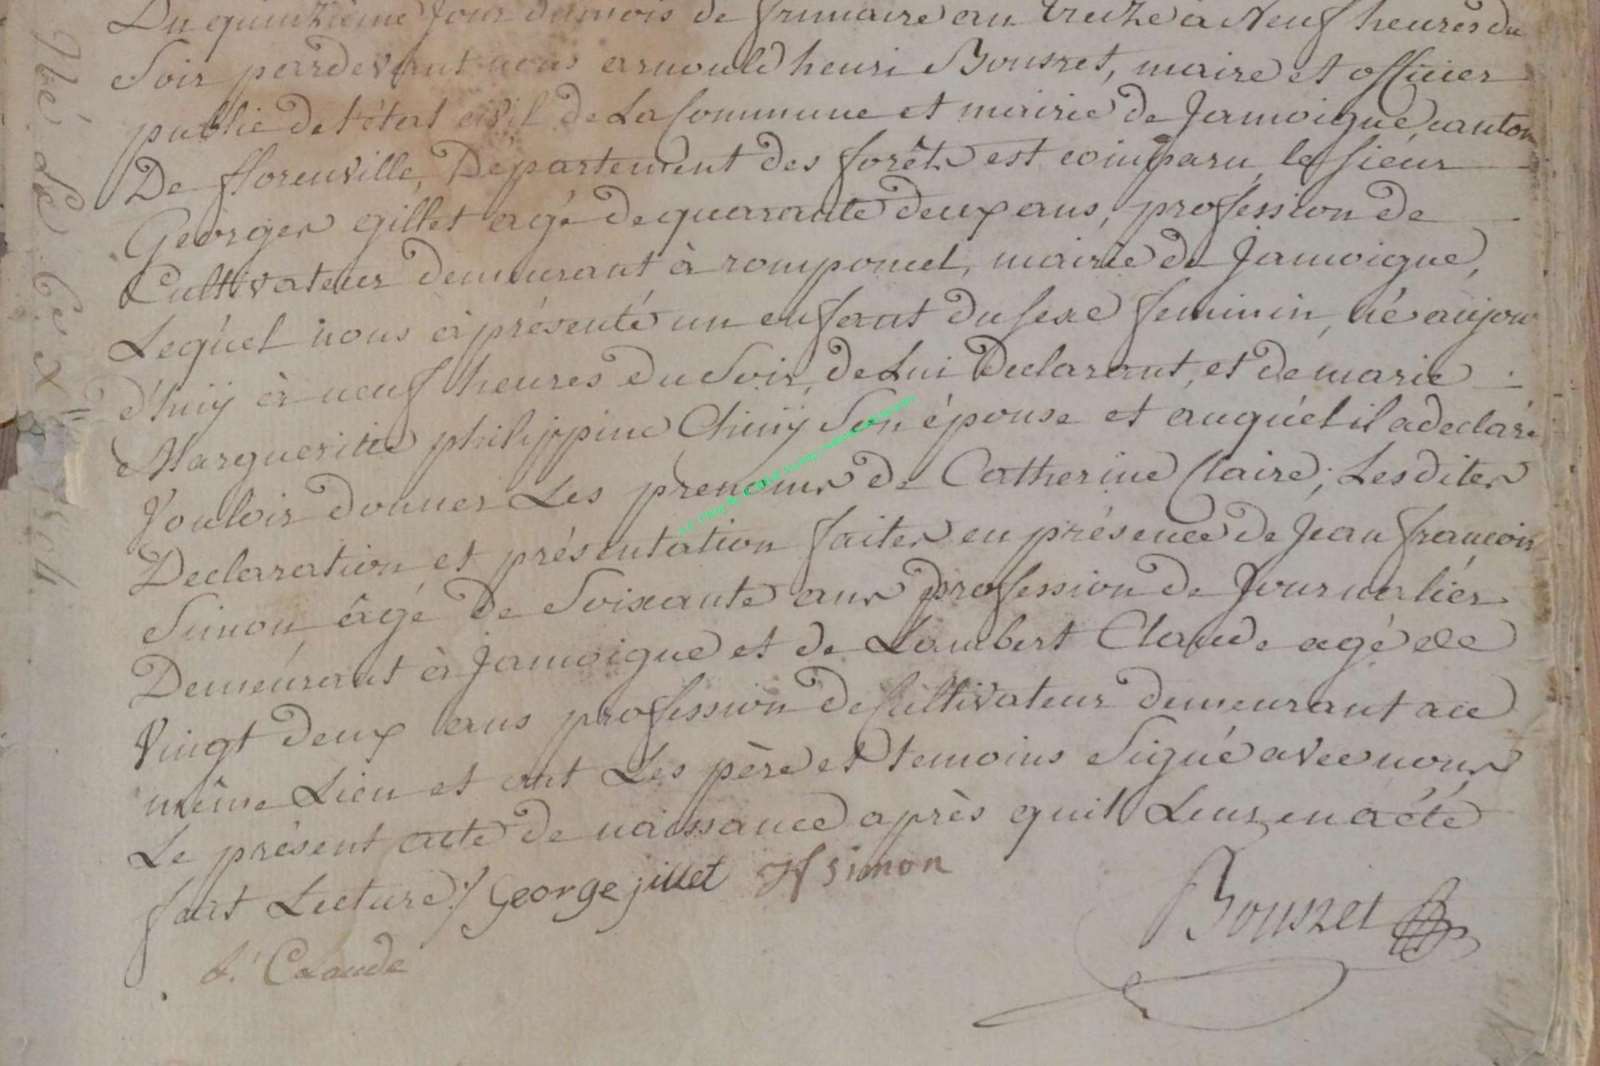 Du quinzième jour du mois de frimaire an treize à Neuf heures du
Soir pardevant nous arnould henri Bousret, maire et officier
public de l'état civil de La Commune et mairie de Jamoigne, canton
De florenville, Département des forêts est comparu le sieur
Georges gillet agé de quarante deux ans, profession de
Cultivateur demeurant à romponcel, mairie de Jamoigne,
Lequel nous à présenté un enfant du sexe feminin, né aujour
d'huÿ à neuf heures du Soir, de Lui Declarant, et de marie
Margueritte philippine Chinÿ Son épouse et auquel il a declaré
Vouloir donner Les prenoms de Catherine Claire; Lesdites
Declaration et présentation faites en présence de Jean françois
Simon, âgé de Soixante ans profession de Journaliér
Demeurant à Jamoigne et de Lambert Claude agé de
Vingt deux ans profession de Cultivateur demeurant a ce
même Lieu et ont Les père et temoins Signé avec nous
Le présent acte de naissance après quil Leur en a été
fait Lecture ./ George jillet Jf simon
Bousret
L. Calaude
Né Le 6e Xbre 1804